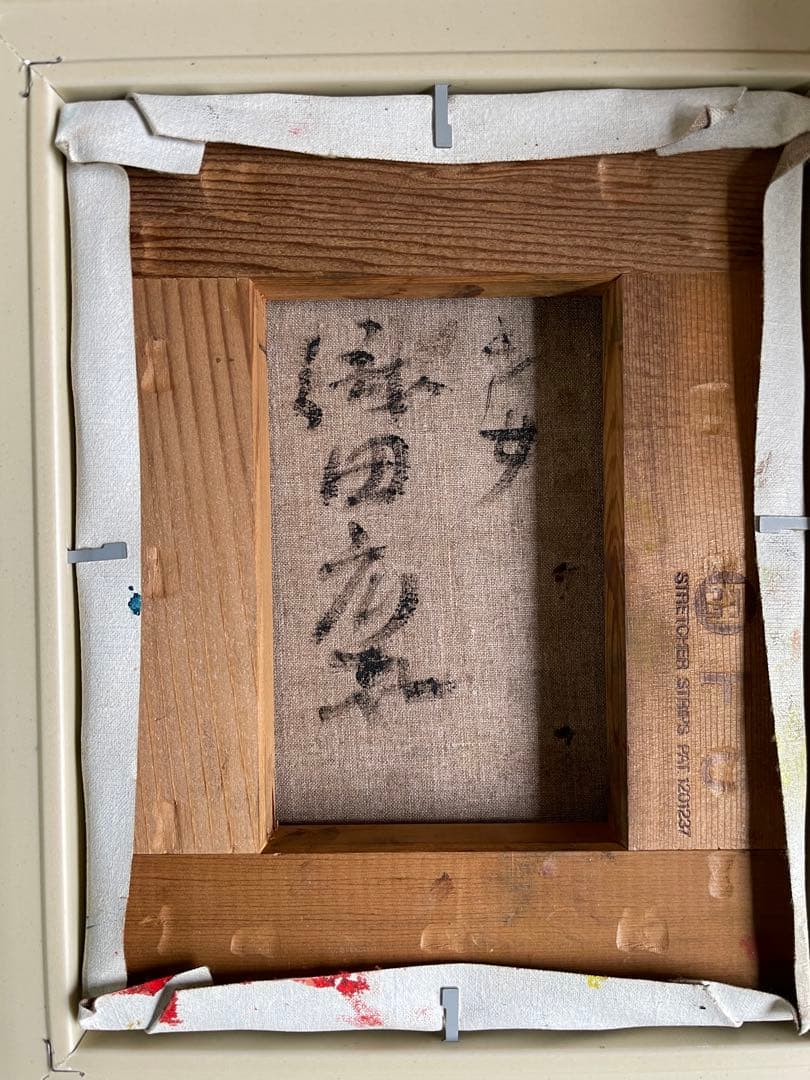 少女
織田広喜
STRETCHER STRIPS PAT 1201237